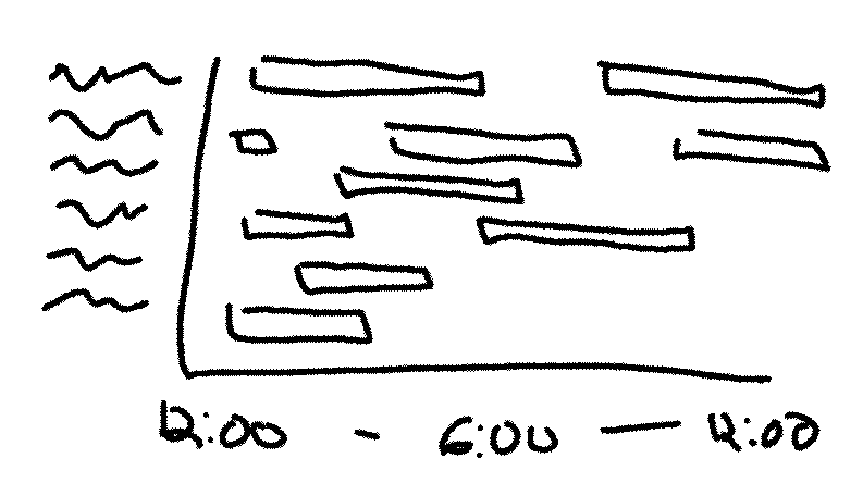 12:00 - 6:00 — 12:00